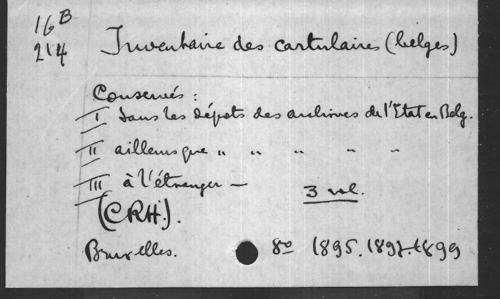 16 B
214
Inventaire des cartulaires (belges)
Conservés :
I dans les dépôts des archives de l'Etat en Belg.
II ailleurs que " " " " "
III à l'étranger — 3 vol.
(CRH).
Bruxelles. 8º 1895. 1897. 1899